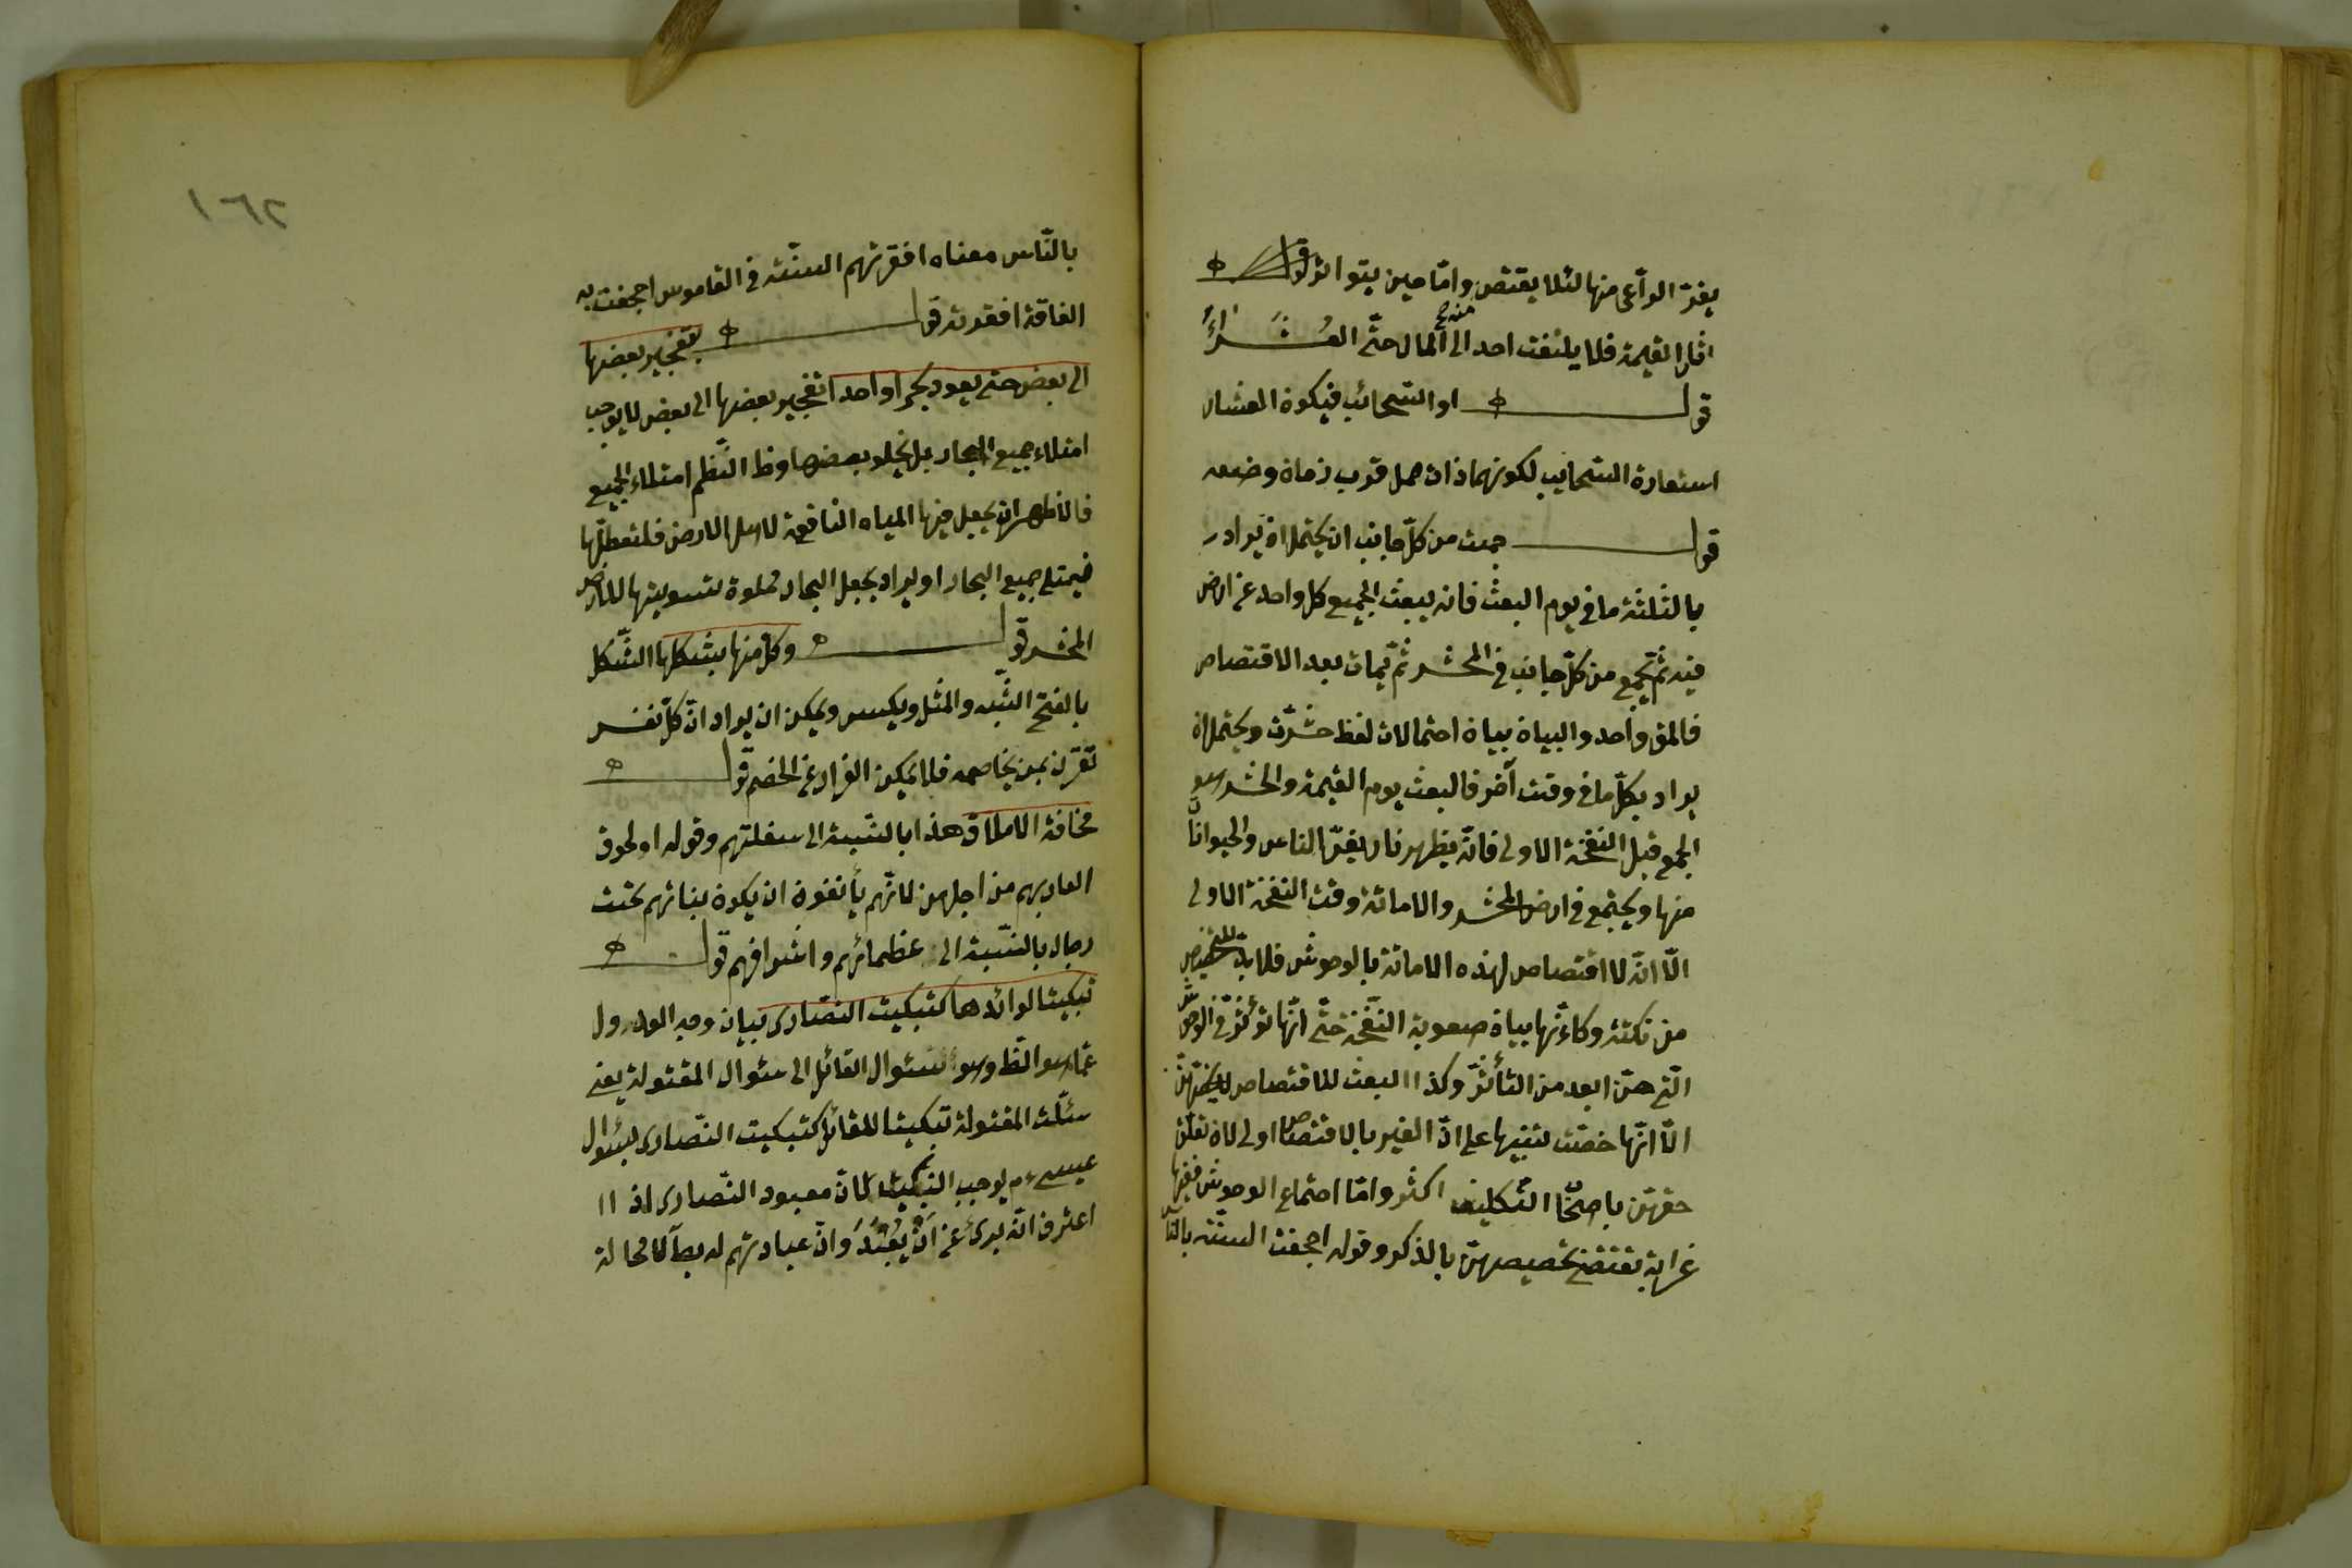 يفرّ الراعى منها لئلا يقتصّ وامّا حين يتواتر قوله
اثار القيمة فلا يلتفت احد الى المال حتّى العُشَراءُ
قوله او السّحائب فيكون العشار
استعارة السّحايب لكونهما ذات حمل قرب زمان وضعه
قوله جمعت من كلّ جانب ان يحتمل ان يراد
بالثلثة ما فى يوم البعث فانه يبعث الجميع كل واحد عن ارض
فيه ثمّ يجمع من كلّ جانب فى المحشر ثمّ يمات بعد الاقتصاص
فالمق واحد والبيان بيان احتمالات لفظ حشرت ويحتمل ان
يراد بكلّ ما فى وقت آخر فالبعث يوم القيمة والحشر هو
الجمع قبل النفخة الاولى فانّه يظهر نار يفرّ الناس والحيوانات
منها ويجتمع فى ارض المحشر والاماتة وقت النفخة الاولى
الّا انّه لا اختصاص لهذه الاماتة بالوحوش فلا بدّ للتخصيص
من نكتة وكأنّها بيان صعوبة النّفخة حتّى انّها تؤثّر فى الوحوش
الّتى هنّ ابعد من التأثّر وكذا البعث للاقتصاص لا يختصّ بهنّ
الّا انّها خصّت تنبيها على انّ الغير بالاقتصاص اولى لان تعلّق
حقهنّ باصحاب التكليف اكثر وامّا اجتماع الوحوش ففيها
غرابة تقتضى تخصيصهنّ بالذكر وقوله اجحفت السنّة بالنّاس
٢٦٢
بالنّاس معناه افقرتهم السنّة فى القاموس اجحفت به
الفاقة افقرته قوله بتفجير بعضها
الى بعض حتى يعود بحرا واحدا تفجير بعضها الى بعض لا يوجب
امتلاء جميع البحار بل يخلو بعضها وظ النّظم امتلاء الجميع
فالاظهر ان يجعل فيها المياه النافعة لاهل الارض فلتعطّلها
فيمتلى جميع البحار او يراد بجعل البحار مملوة تسويتها للارض
المحشر قوله وكل منها بشكلها الشّكل
بالفتح الشّبه والمثل ويكسر ويمكن ان يراد انّ كلّ نفس
تقرن بمن يخاصمه فلا يمكن الفرار عن الخصم قوله
مخافة الاملاق هذا بالنّسبة الى سفلتهم وقوله او لحوق
العار بهم من اجلهن لانّهم يأنفون ان يكون بناتهم تحت
رجال بالنّسبة الى عظمائهم واشرافهم قوله
تبكيتا لوائدها كتبكيت النصارى بيان وجه العدول
عمّا هو الظ وهو سئوال القائل الى سئوال المقتولة يعنى
سئلت المقتولة تبكيتا للقاتل كتبكيت النّصارى بسئوال
عيسى ءم يوجب التبكيت لانّ معبود النّصارى اذا
اعترف انّه برىء عن اَنْ يُعْبَدَ وانّ عبادتهم له بط لا محالة